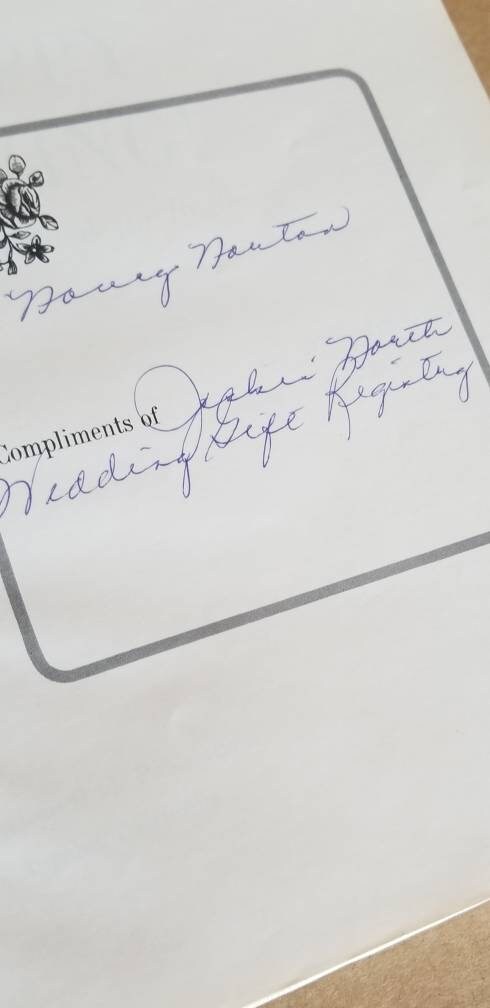 Nancy Norton
Compliments of Joske's North
Wedding Gift Registry